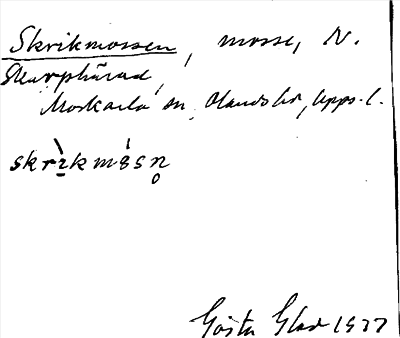 Skrikmossen, mosse, N.
Skarphärad,
Morkarla sn, Olands hd, Upps. l.
skrìkmósn̥
Gösta Glad 1977